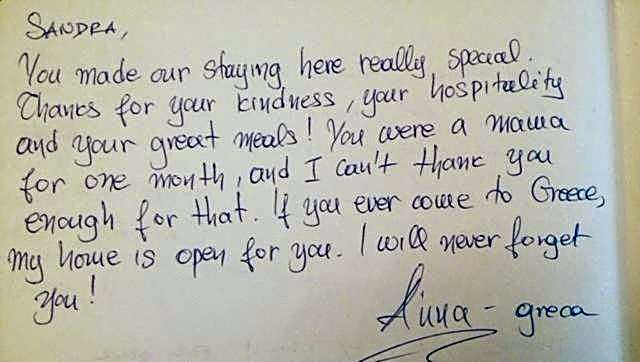 SANDRA,
You made our staying here really special.
Thanks for your kindness, your hospitality
and your great meals! You were a mama
for one month, and I can't thank you
enough for that. If you ever come to Greece,
my home is open for you. I will never forget
you!
Anna - greca